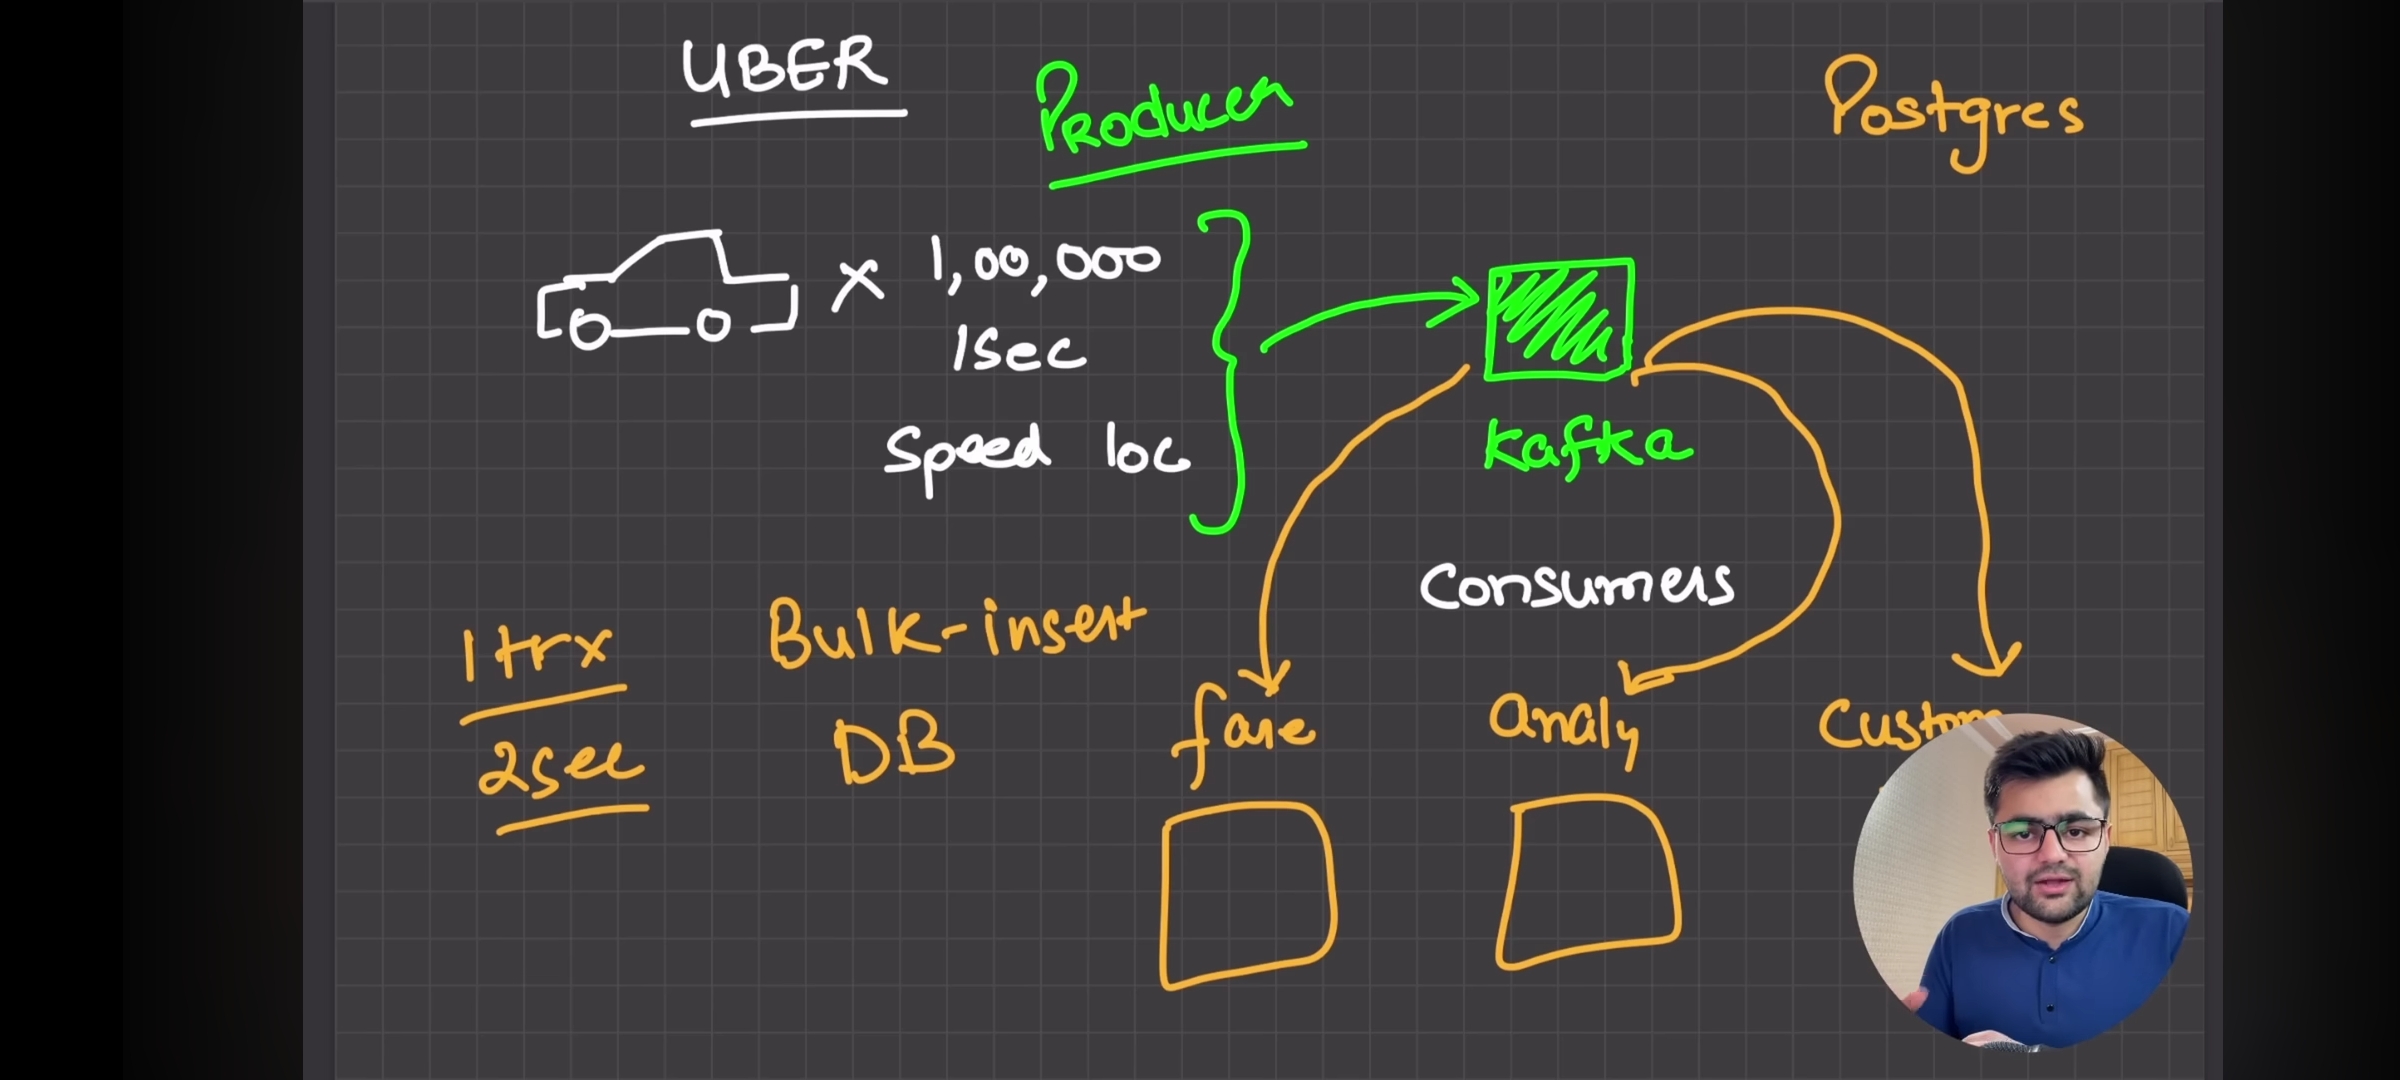 UBER
Producer
Postgres
x 1,00,000
1sec
Speed loc
Kafka
Consumers
1 trx
2sec
Bulk-insert
DB
fare
analy
Custom